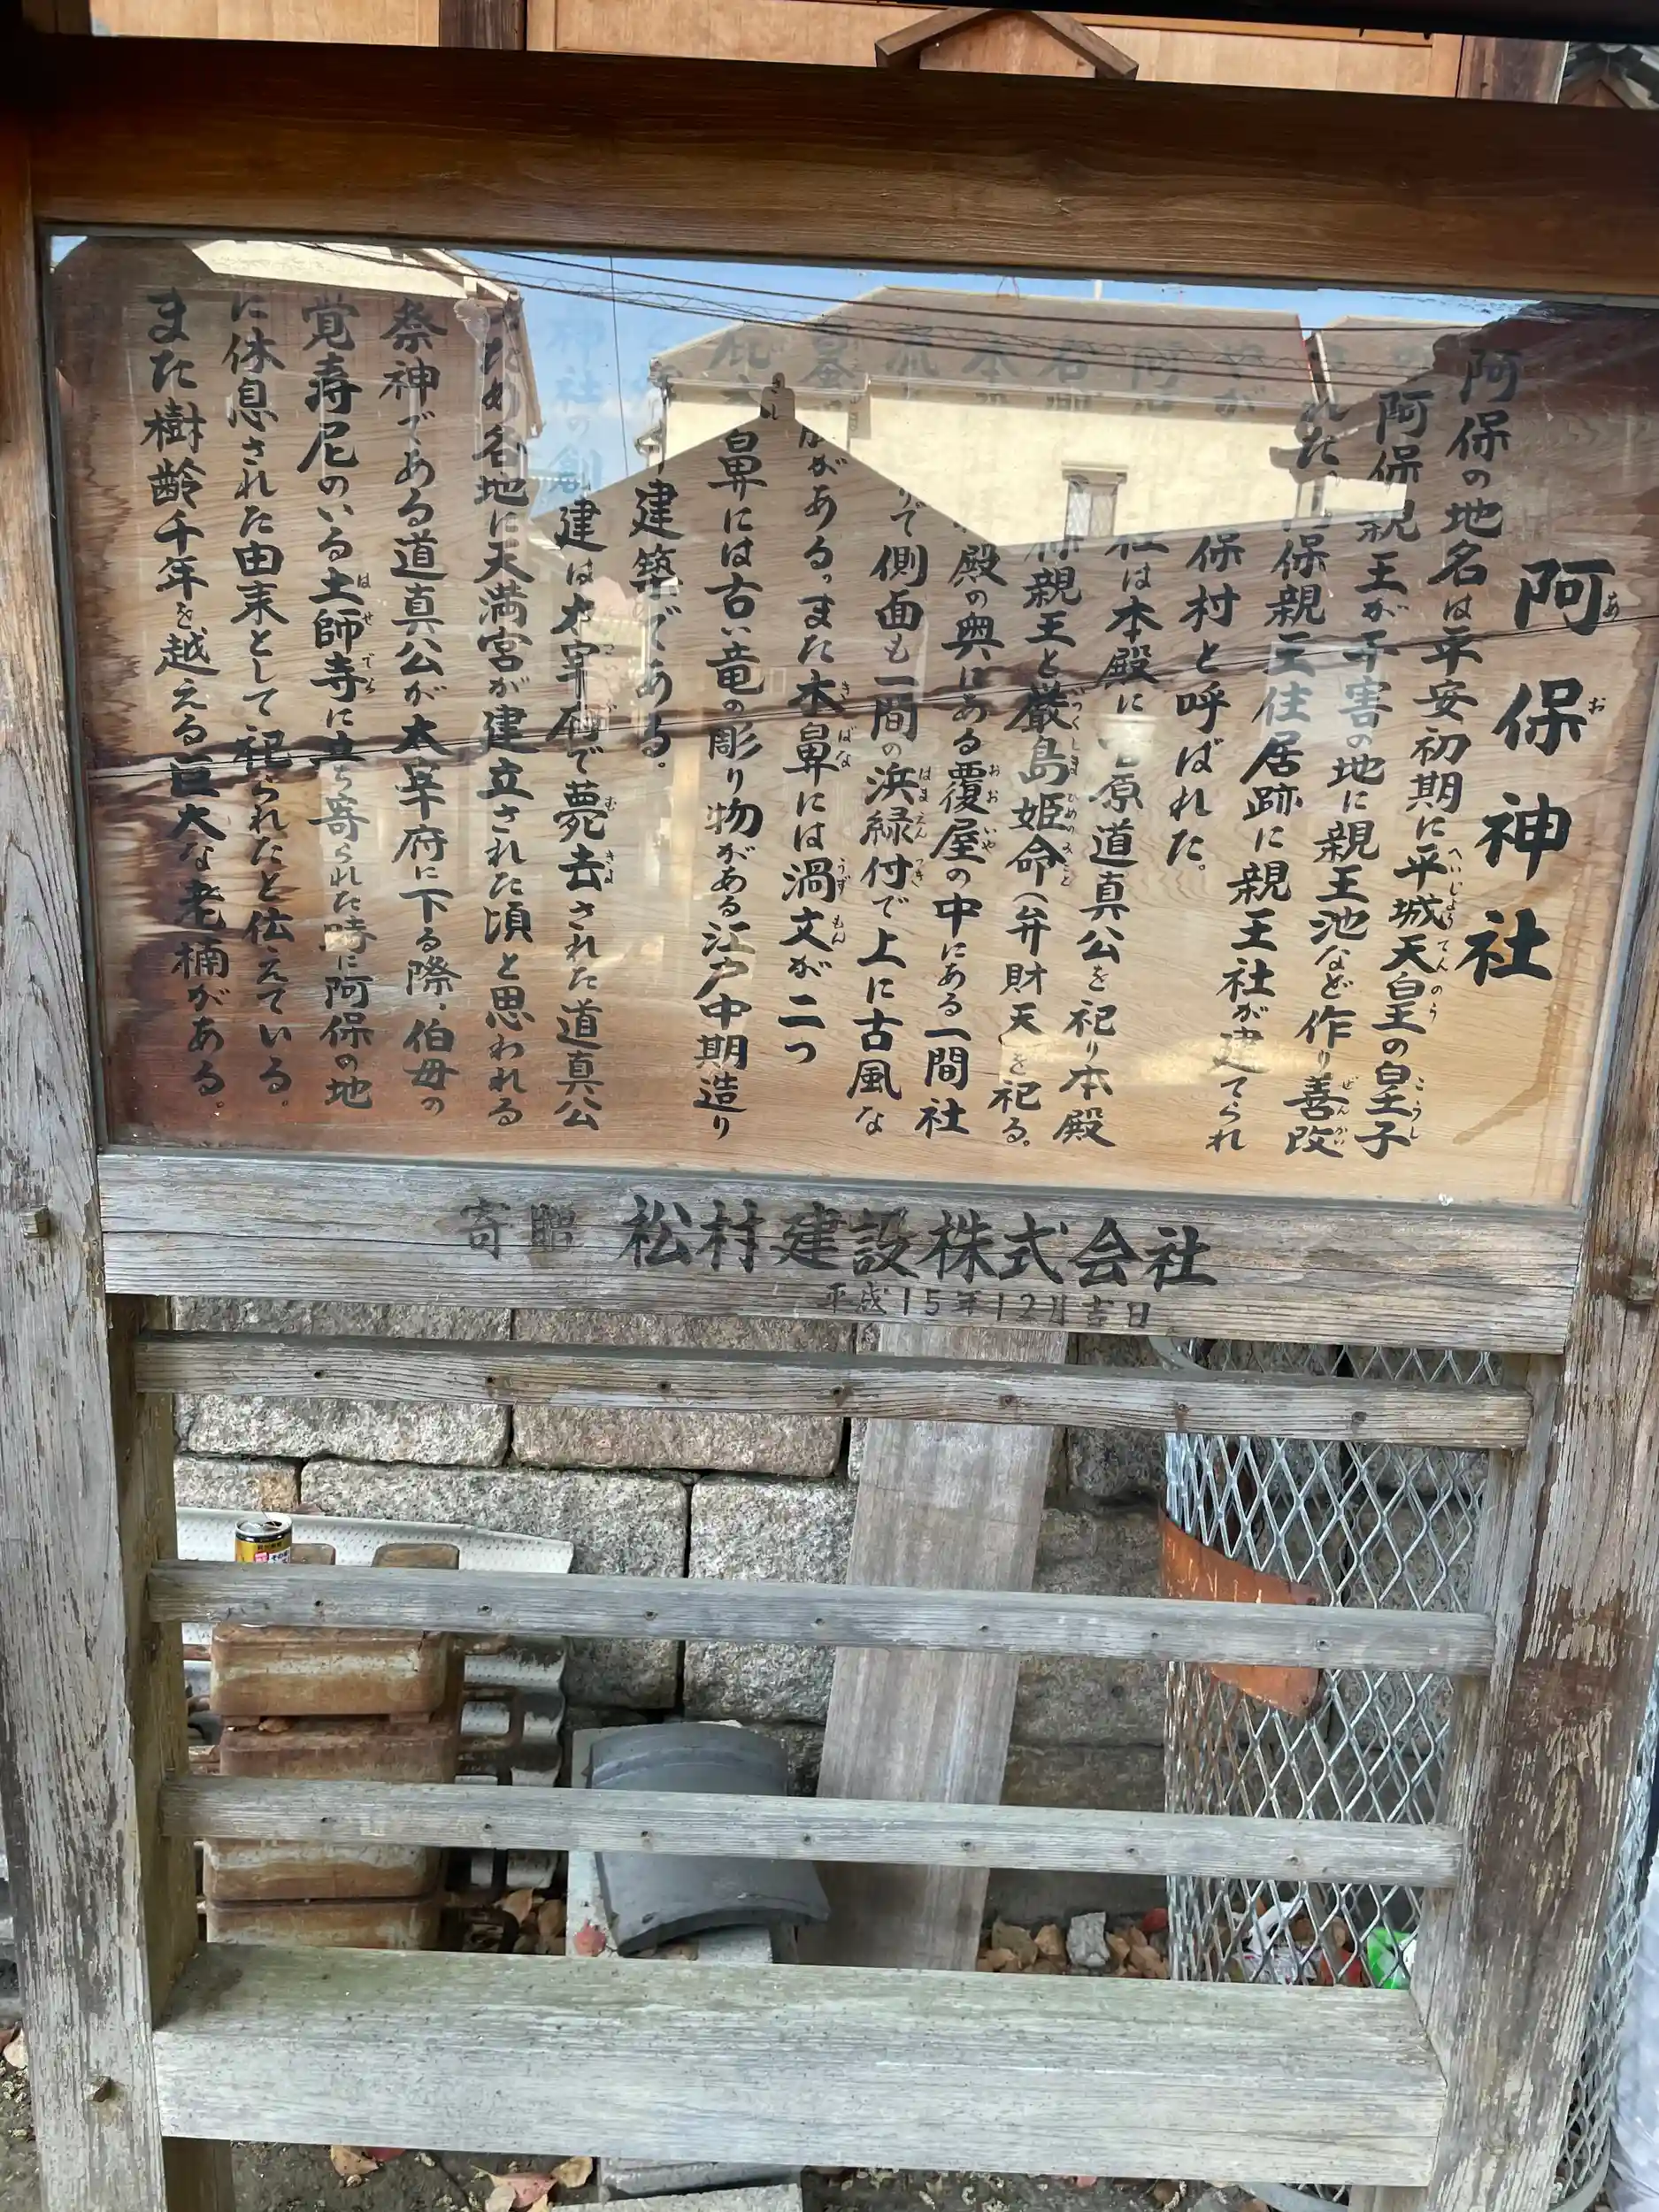 阿保神社
阿保の地名は平安初期に平城天皇の皇子
阿保親王が子害の地に親王池など作り善改
された。阿保親王住居跡に親王社が建てられ
やが 保村と呼ばれた。
阿保 社は本殿に菅原道真公を祀り本殿
保親王と厳島姫命(弁財天)を祀る。
本殿の奥にある覆屋の中にある一間社
流 りで側面も一間の浜緑付で上に古風な
墓股がある。また木鼻には渦文が二つ
鼻には古い竜の彫り物がある江戸中期造り
建築である。
神社の創建は太宰府で薨去された道真公
のため各地に天満宮が建立された頃と思われる
祭神である道真公が太宰府に下る際、伯母の
覚寿尼のいる土師寺に立ち寄られた時に阿保の地
に休息された由来として祀られたと伝えている。
また樹齢千年を越える巨大な老楠がある。
寄贈 松村建設株式会社
平成15年12月吉日